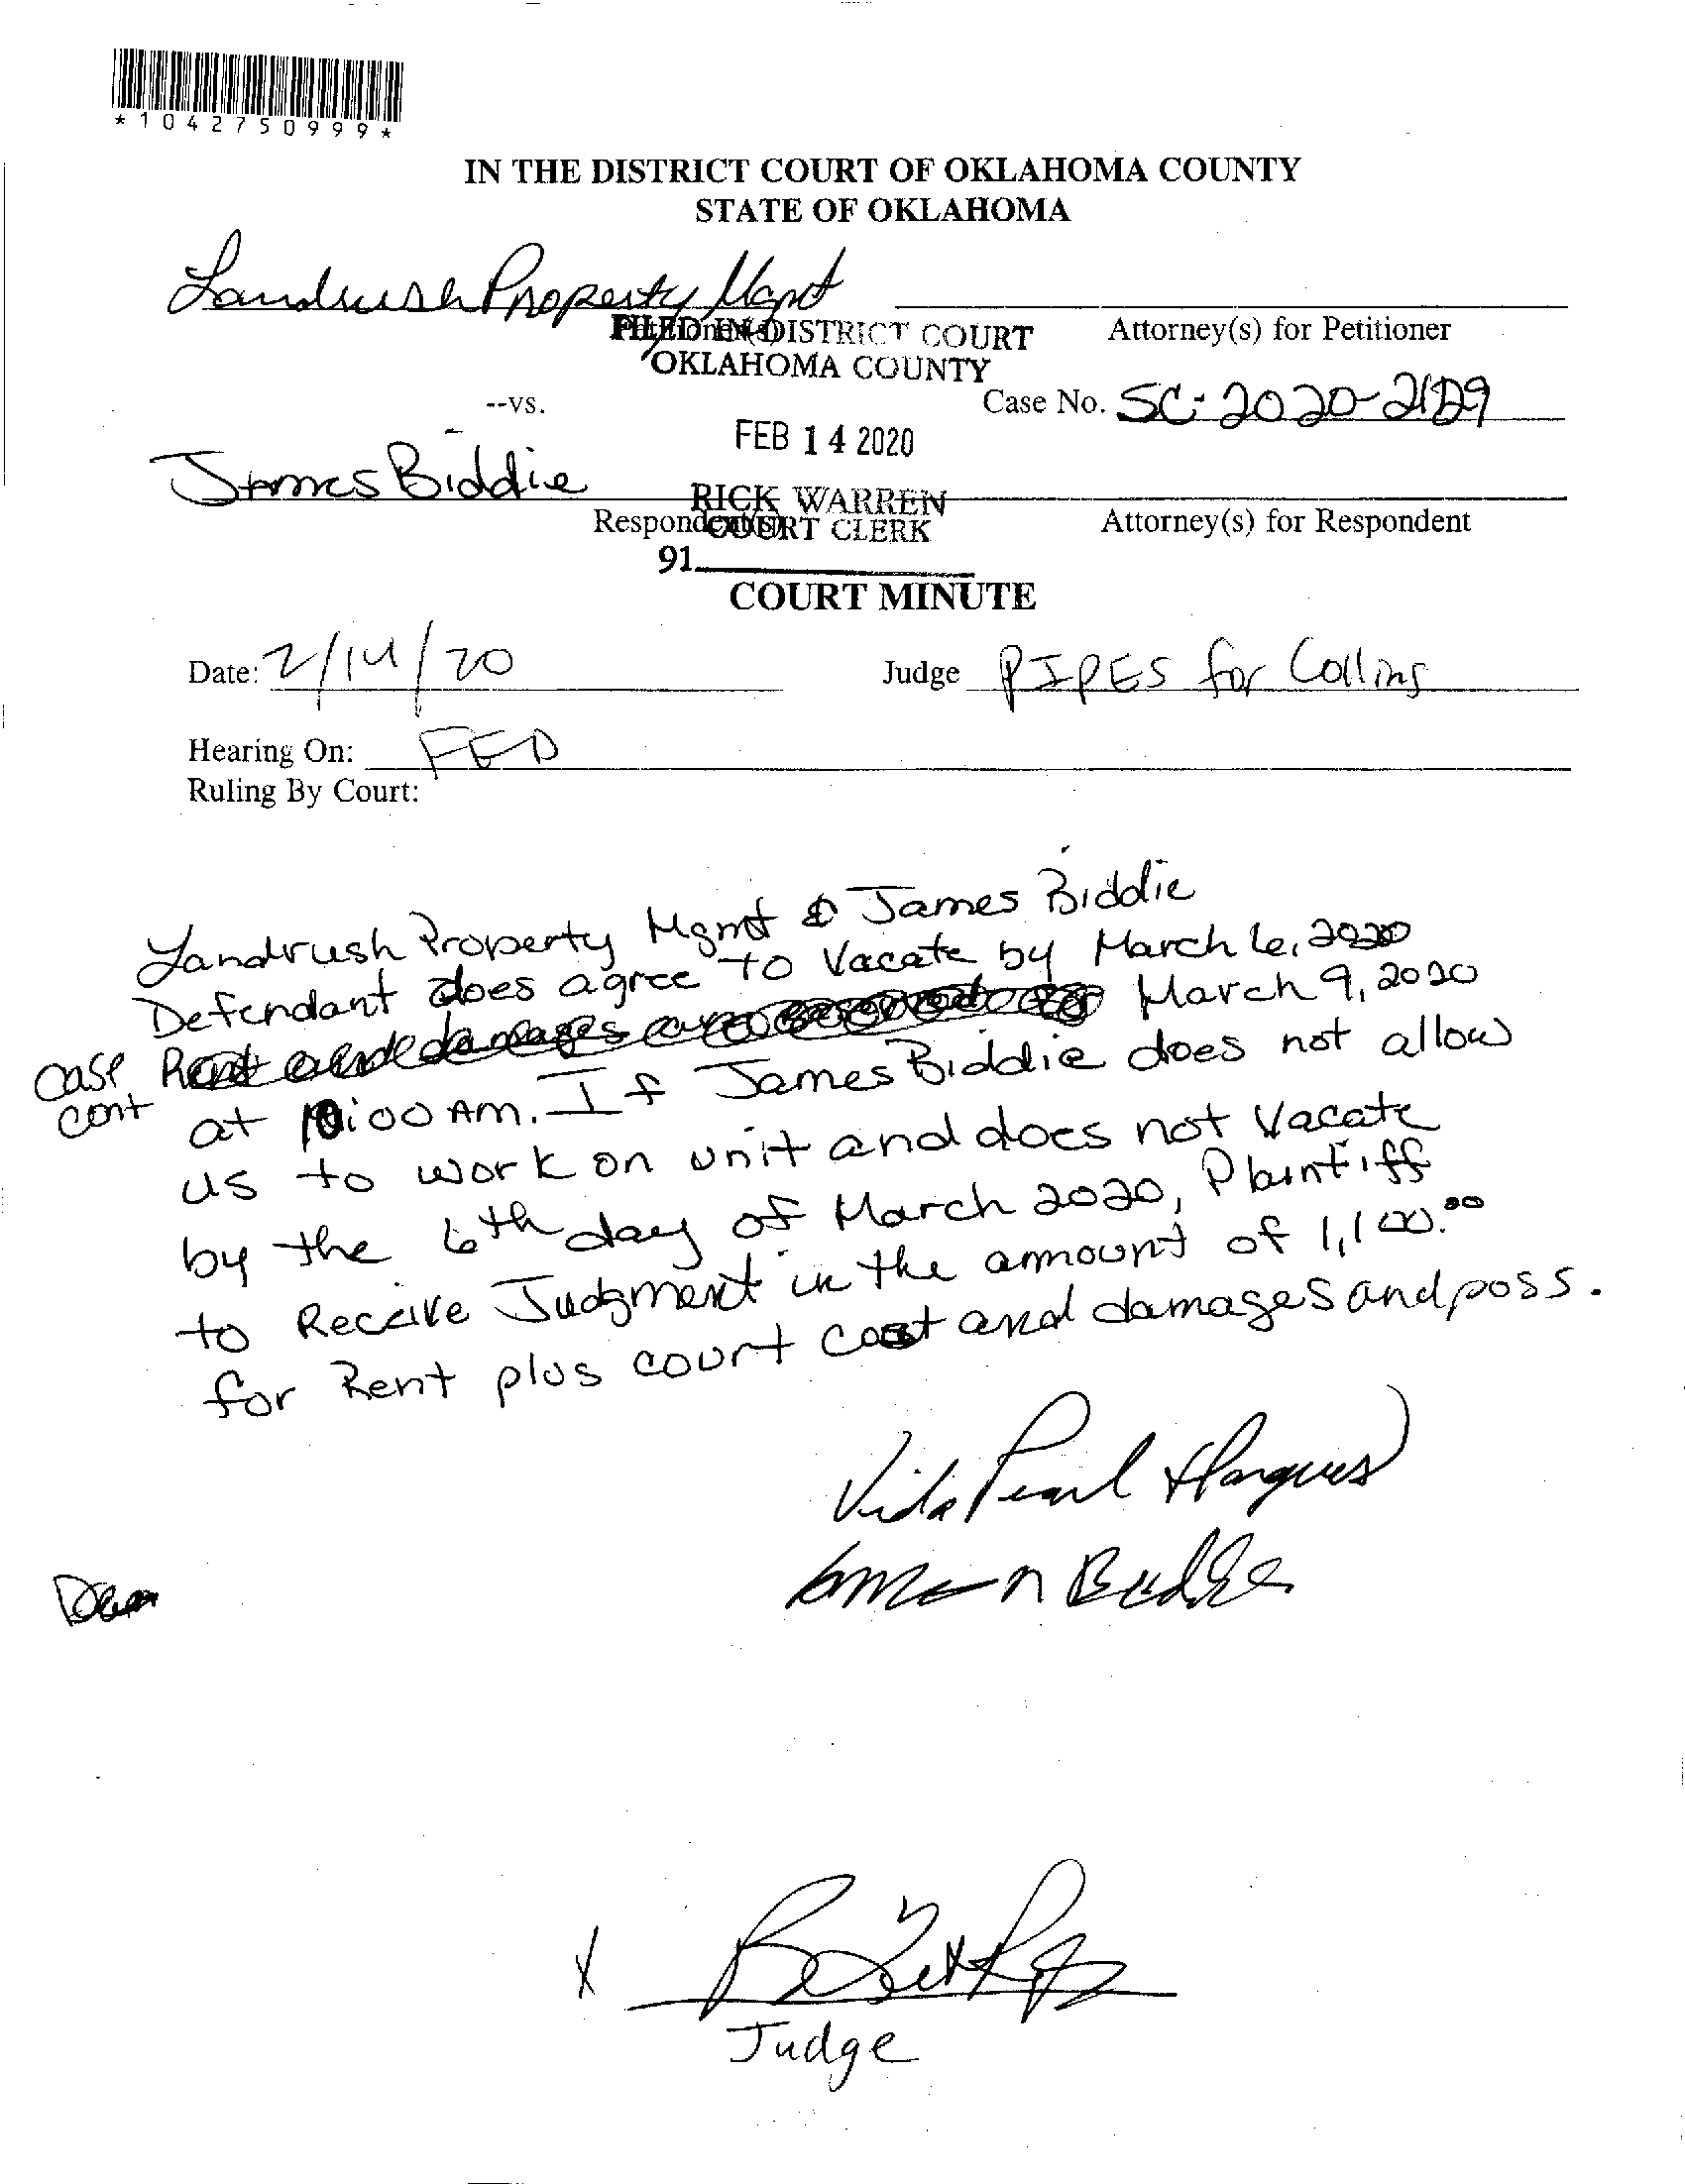 *1042750999*
IN THE DISTRICT COURT OF OKLAHOMA COUNTY
STATE OF OKLAHOMA
Landrush Property Mgmt
Petitioner(s)
Attorney(s) for Petitioner
FILED IN DISTRICT COURT
OKLAHOMA COUNTY
--vs.
Case No. SC-2020-2129
FEB 14 2020
James Biddie
RICK WARREN
COURT CLERK
Respondent(s)
Attorney(s) for Respondent
91
COURT MINUTE
Date: 2/14/20
Judge PIPES for Collins
Hearing On: FED
Ruling By Court:
Landrush Property Mgmt & James Biddie
Defendant does agree to Vacate by March 6, 2020
case Rent and damages are March 9, 2020
cont at 10:00 AM. If James Biddie does not allow
us to work on unit and does not Vacate
by the 6th day of March 2020, Plaintiff
to Receive Judgment in the amount of 1,100.00
for Rent plus court cost and damages and poss.
Vida Pearl
X
Judge